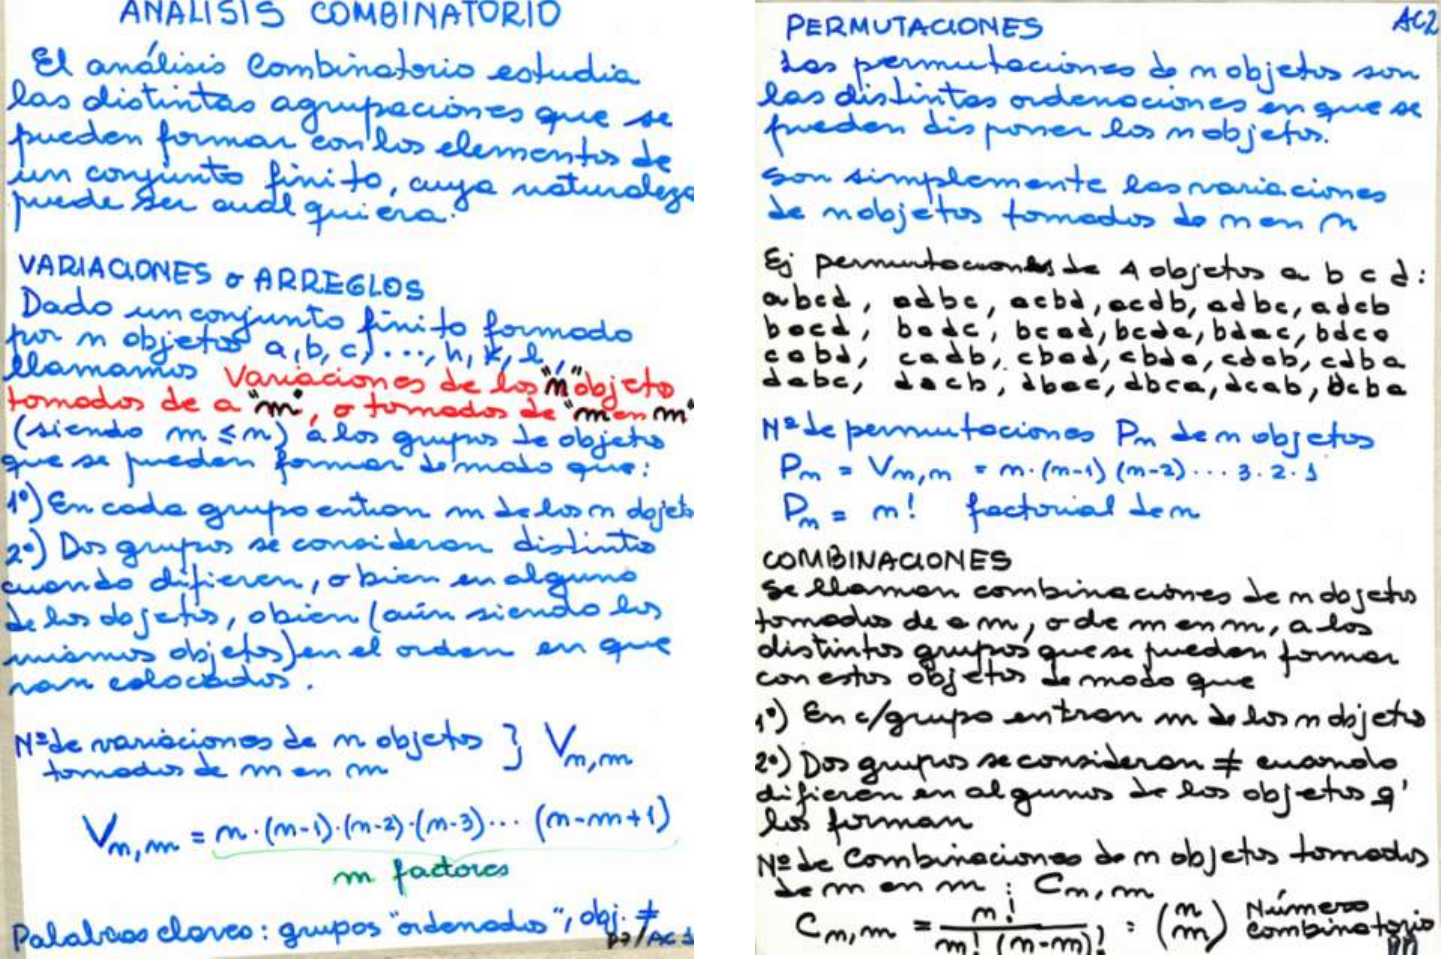 ANALISIS COMBINATORIO
El análisis Combinatorio estudia
las distintas agrupaciones que se
pueden formar con los elementos de
un conjunto finito, cuya naturaleza
puede ser cualquiera.
VARIACIONES o ARREGLOS
Dado un conjunto finito formado
por n objetos a, b, c, ..., h, k, l,
llamamos Variaciones de los "n" objeto
tomados de a "m", o tomados de "m en m"
(siendo m ≤ n) a los grupos de objetos
que se pueden formar de modo que:
1º) En cada grupo entran m de los n objeto
2º) Dos grupos se consideran distintos
cuando difieren, o bien en alguno
de los objetos, o bien (aún siendo los
mismos objetos) en el orden en que
van colocados.
Nº de variaciones de n objetos } V n,m
tomados de m en m
V n,m = n·(n-1)·(n-2)·(n-3)··· (n-m+1)
m factores
Palabras claves: grupos "ordenados", obj. ≠
AC 1
PERMUTACIONES AC2
Las permutaciones de n objetos son
las distintas ordenaciones en que se
pueden disponer los n objetos.
Son simplemente las variaciones
de n objetos tomados de n en n
Ej permutaciones de 4 objetos a b c d:
abcd, adbc, acbd, acdb, adbc, adcb
bacd, badc, bcad, bcda, bdac, bdca
cabd, cadb, cbad, cbda, cdab, cdba
dabc, dacb, dbac, dbca, dcab, dcba
Nº de permutaciones Pn de n objetos
Pn = Vn,n = n·(n-1)(n-2)···3·2·1
Pn = n! factorial de n
COMBINACIONES
Se llaman combinaciones de n objetos
tomados de a m, o de m en m, a los
distintos grupos que se pueden formar
con estos objetos de modo que
1º) En c/grupo entran m de los n objetos
2º) Dos grupos se consideran ≠ cuando
difieren en algunos de los objetos q'
los forman
Nº de Combinaciones de n objetos tomados
de m en m : C n,m
C n,m = n! / m! (n-m)! = (n m) Número
combinatorio